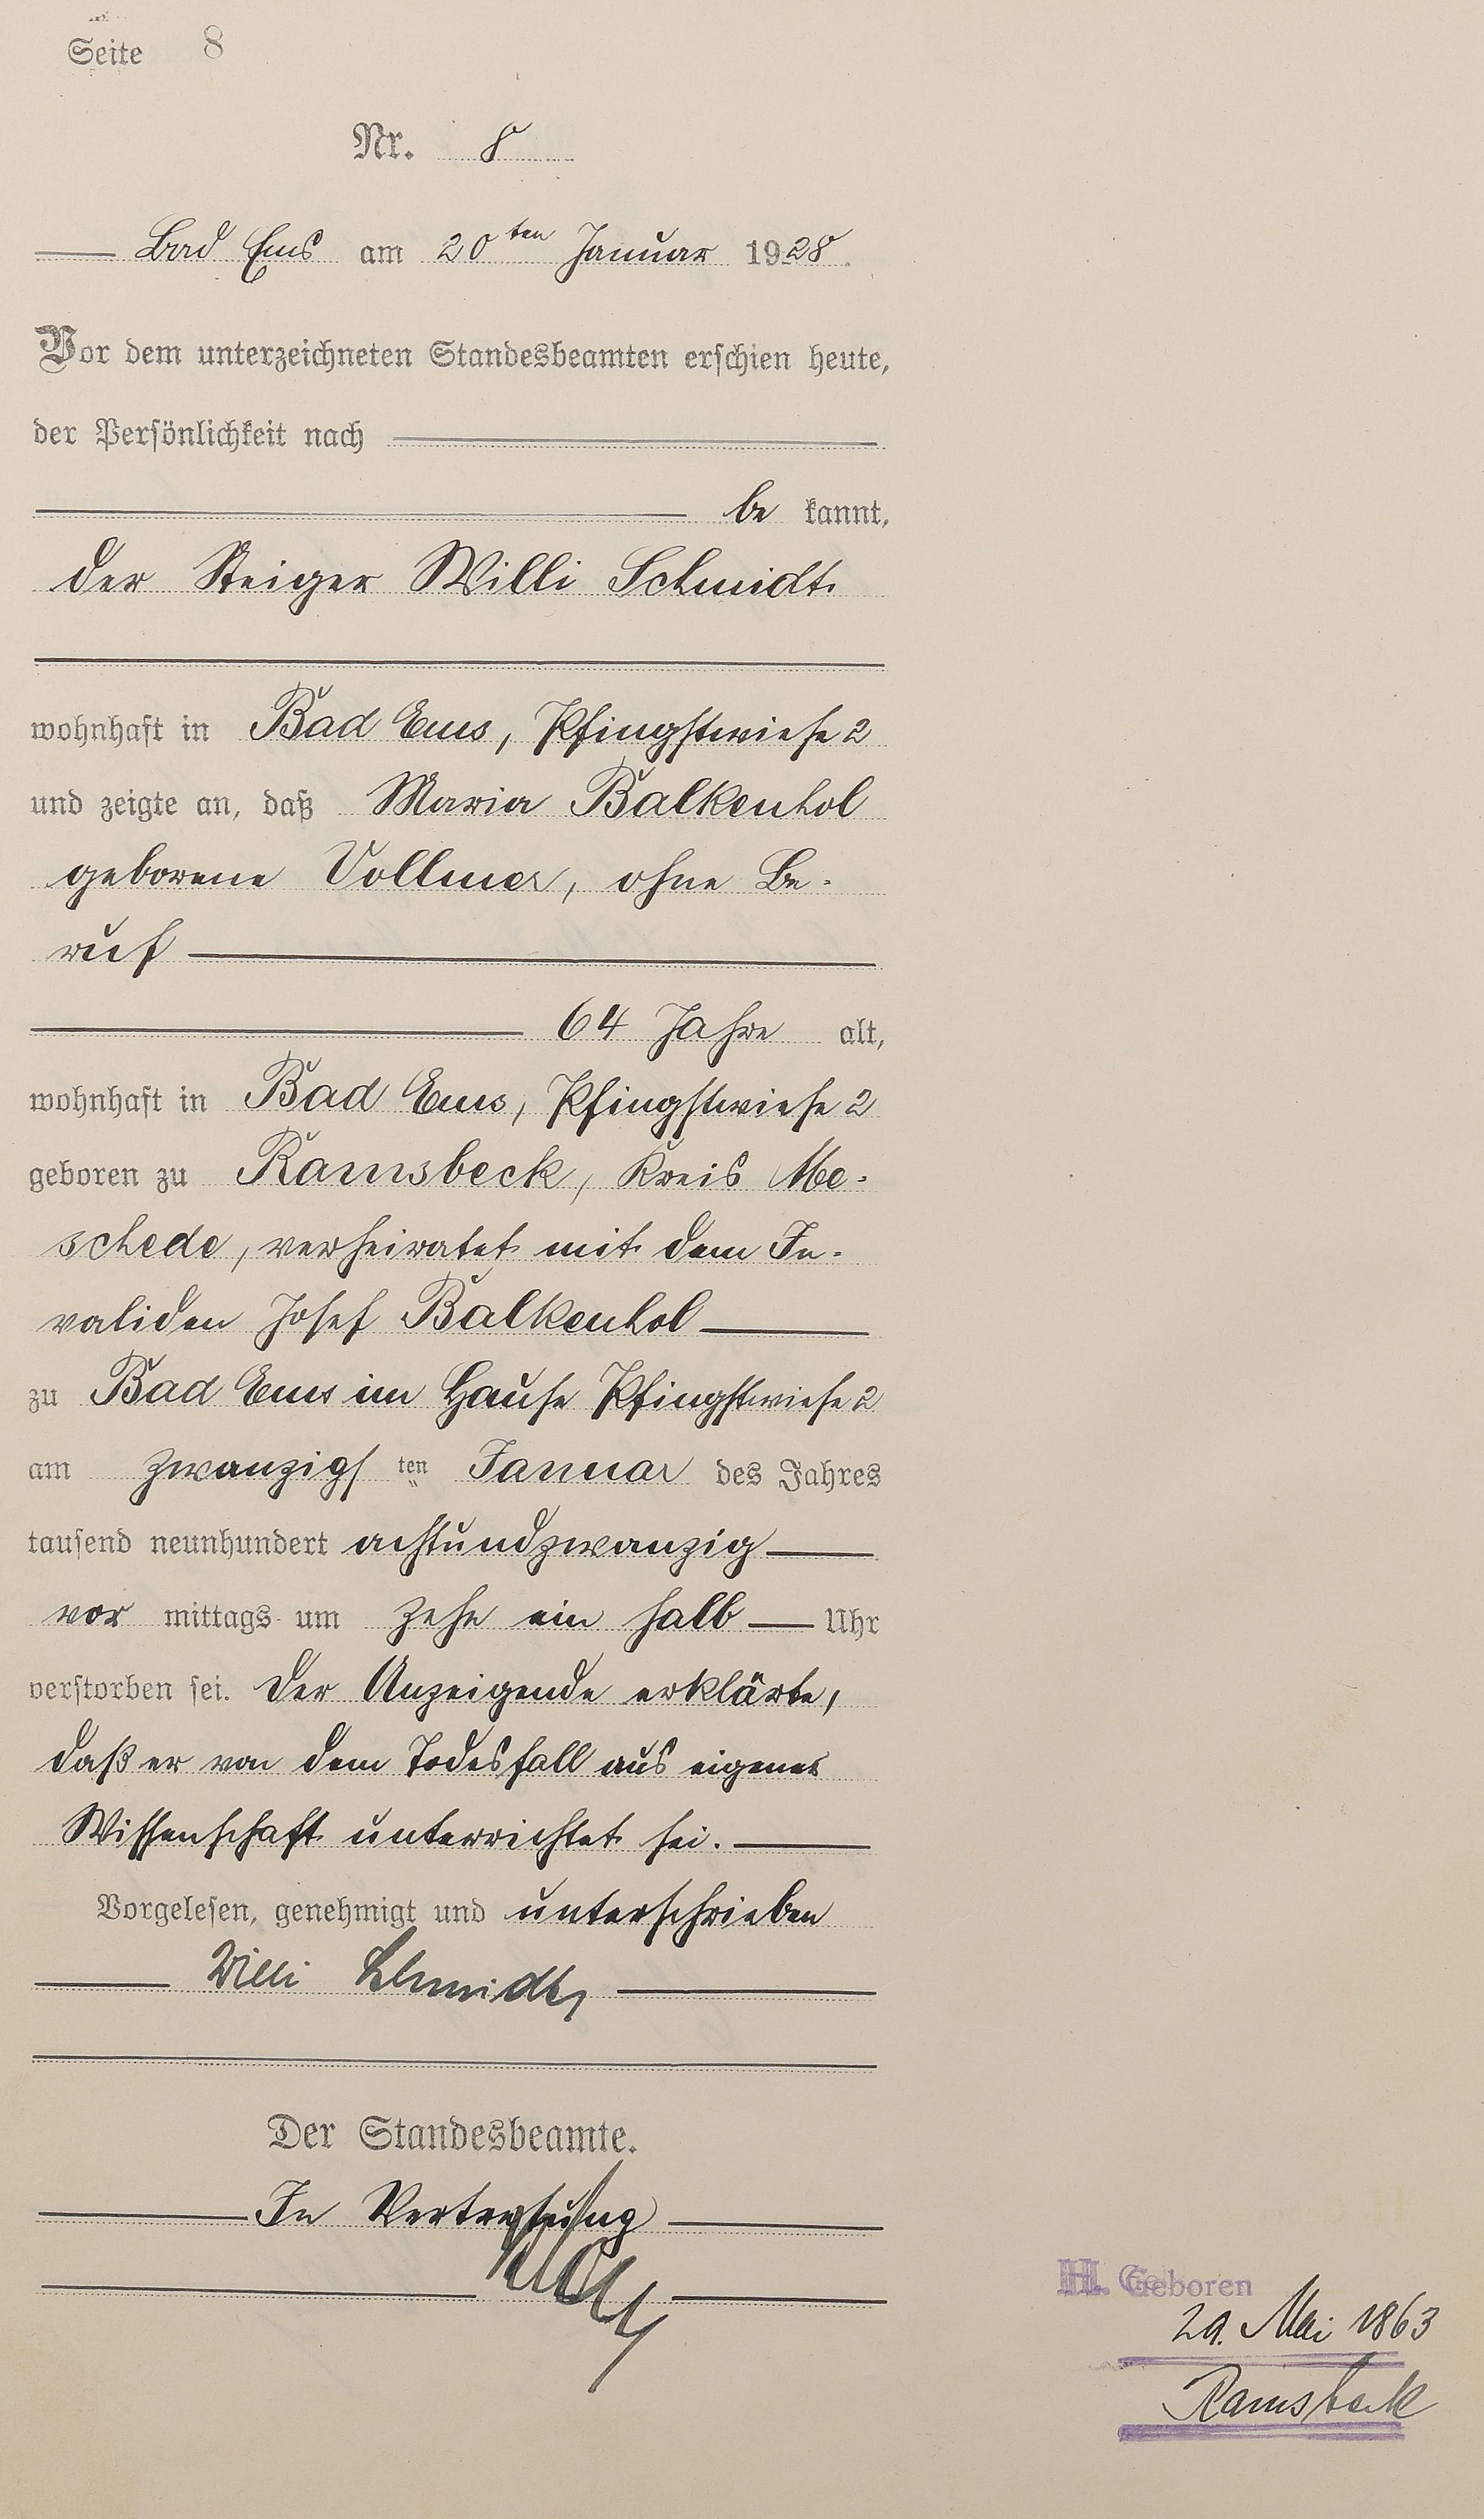 Seite 8
Nr. 8
Bad Ems am 20ten Januar 1928.
Vor dem unterzeichneten Standesbeamten erschien heute,
der Persönlichkeit nach
be kannt,
der Steiger Willi Schmidt
wohnhaft in Bad Ems, Pfingstwiese 2
und zeigte an, daß Maria Balkenhol
geborene Vollmer, ohne Be-
ruf
64 Jahre alt,
wohnhaft in Bad Ems, Pfingstwiese 2
geboren zu Ramsbeck, Kreis Me-
schede, verheiratet mit dem In-
validen Josef Balkenhol
zu Bad Ems im Hause Pfingstwiese 2
am zwanzigsten Januar des Jahres
tausend neunhundert achtundzwanzig
vor mittags um zehn ein halb Uhr
verstorben sei. Der Anzeigende erklärte,
daß er von dem Todesfall aus eigener
Wissenschaft unterrichtet sei.
Vorgelesen, genehmigt und unterschrieben
Willi Schmidt
Der Standesbeamte.
In Vertretung
H. Geboren
29. Mai 1863
Ramsbeck